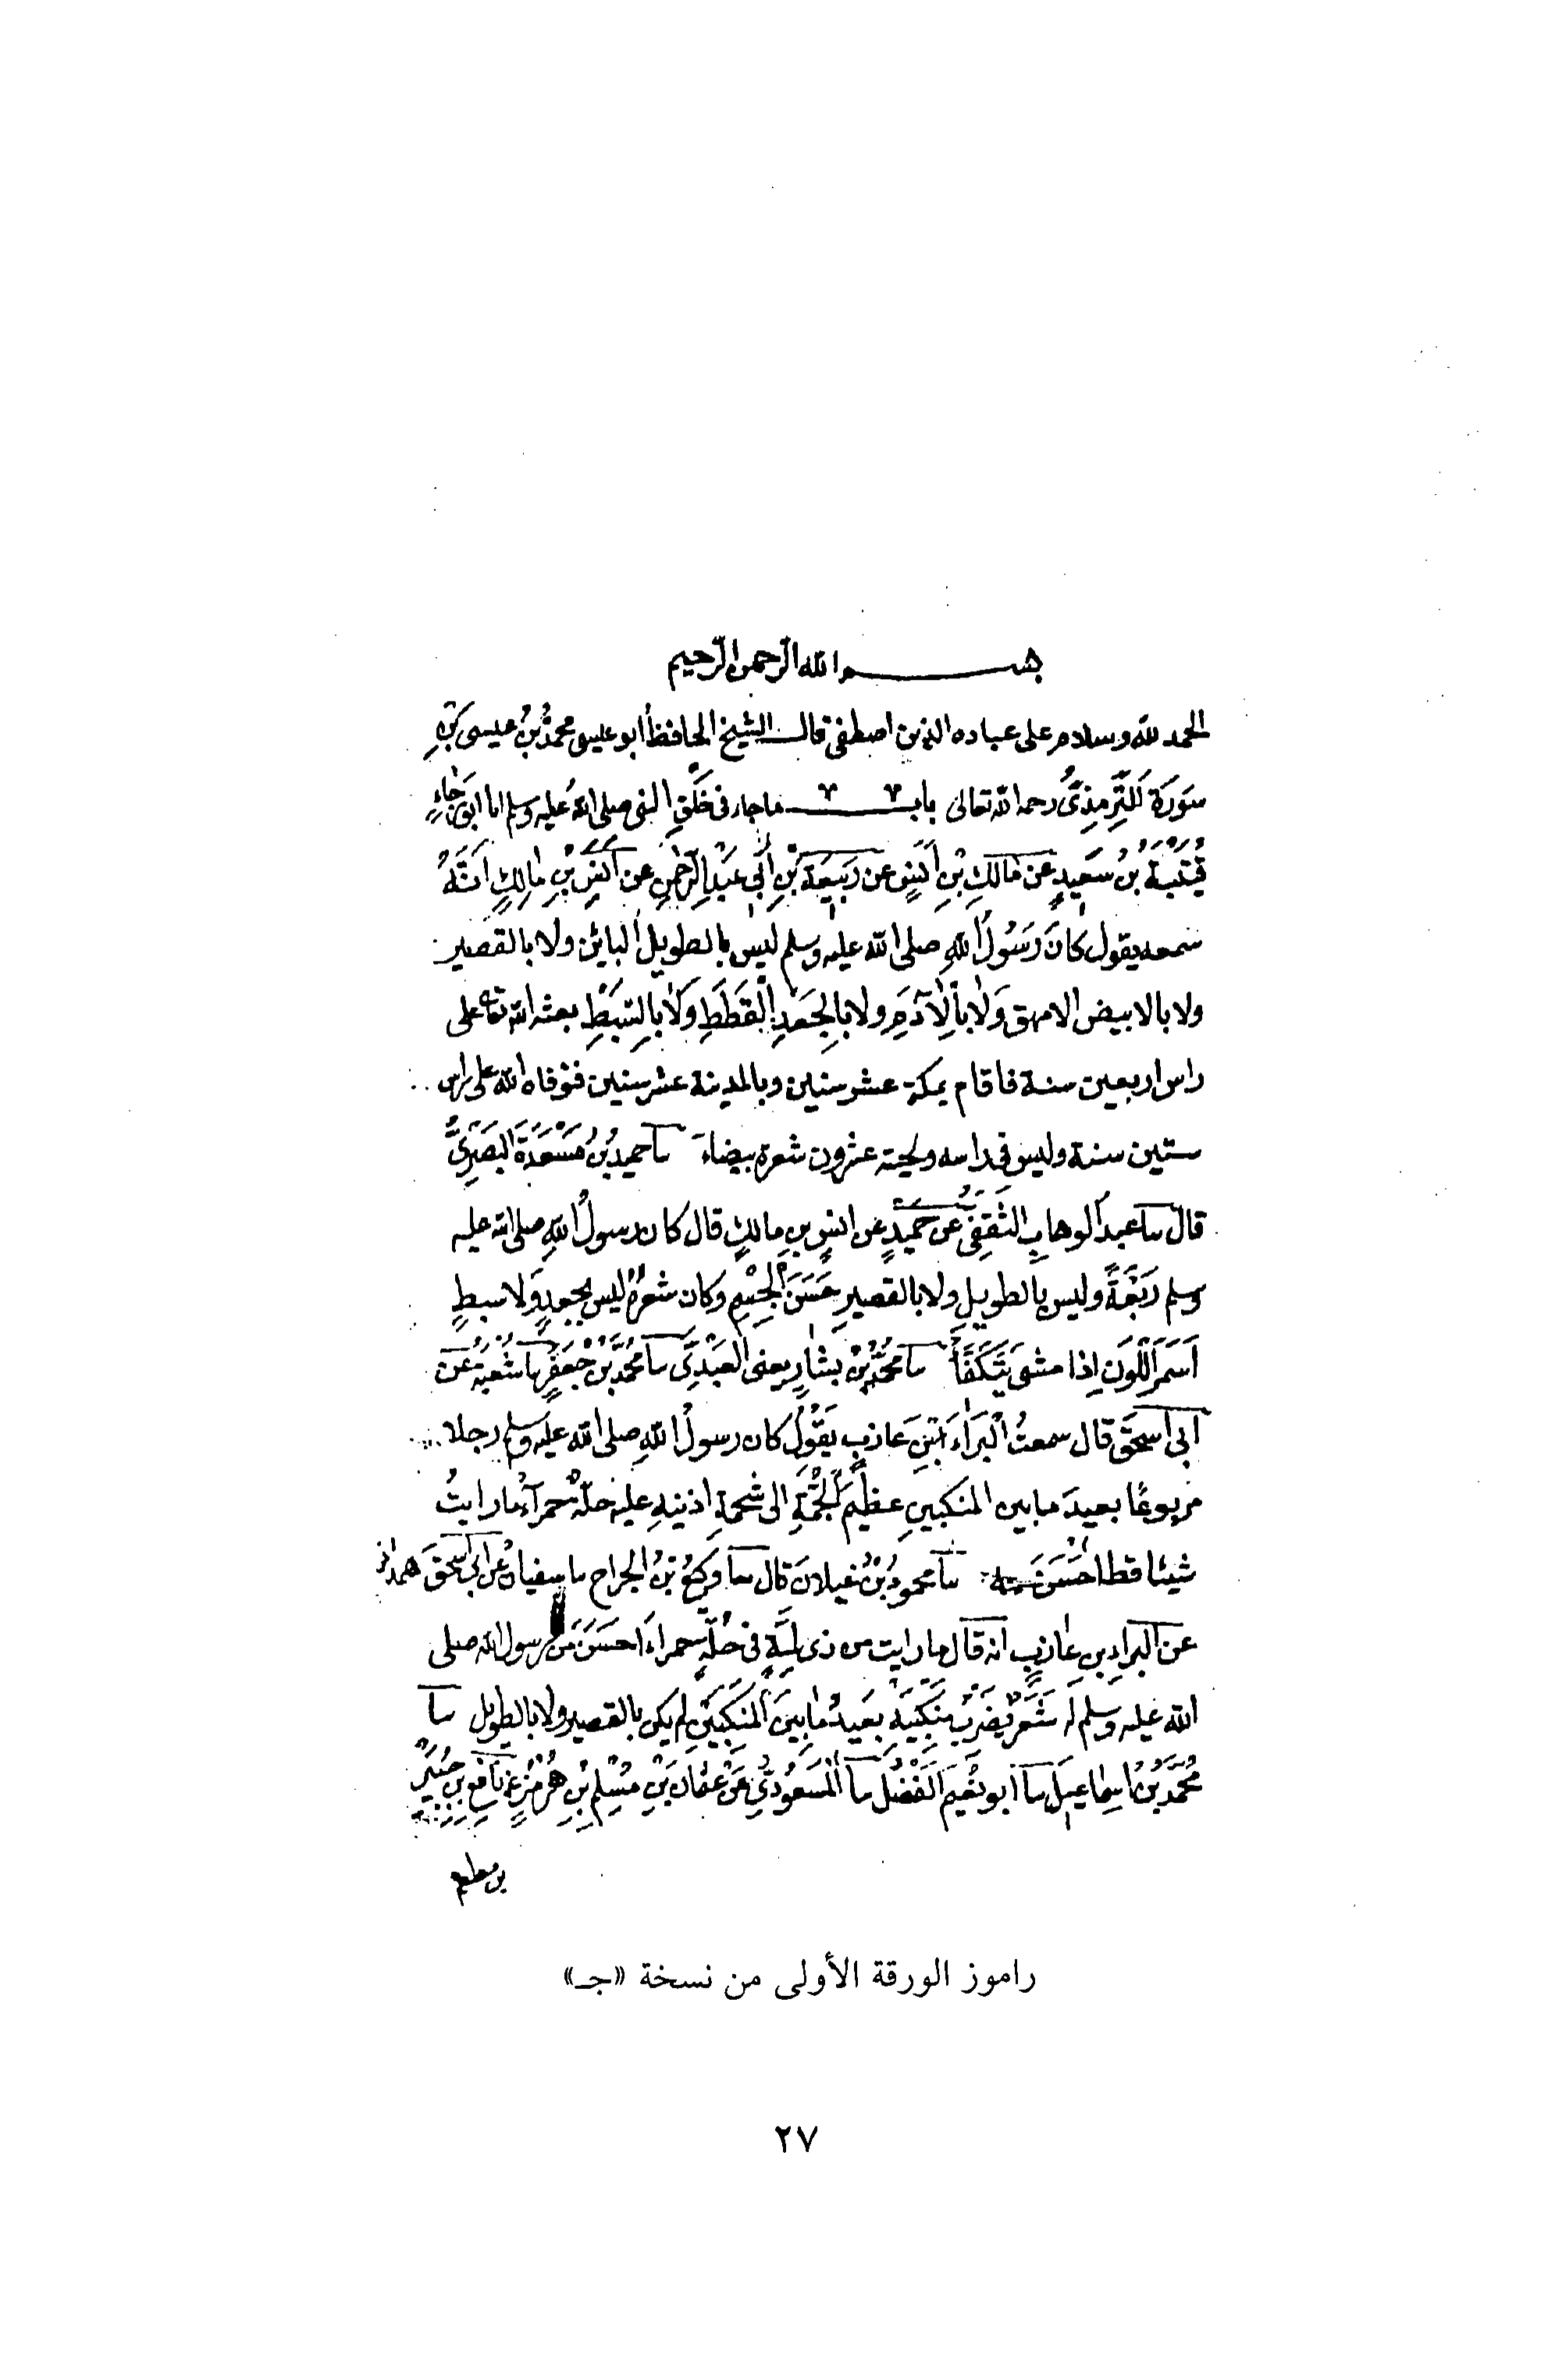 بسم الله الرحمن الرحيم
الحمد لله وسلام على عباده الذين اصطفى قال الشيخ الحافظ أبو عيسى محمد بن عيسى بن
سَورَة التِّرمِذيُّ رحمه الله تعالى باب ما جاء في خَلْقِ النبي صلى الله عليه وسلم انا ابو رَجَاءٍ
قُتَيْبَةُ بنُ سَعِيدٍ عن مَالِكِ بْنِ أَنَسٍ عن رَبِيعَةَ بْنِ أَبِي عَبْدِ الرَّحْمٰنِ عن أَنَسِ بْنِ مَالِكٍ أَنَّهُ
سمعه يقول كَانَ رَسُولُ اللهِ صلى الله عليه وسلم ليس بالطويل البائن ولا بالقصير
ولا بالابيض الامهق وَلَا بِالْآدَمِ ولا بالجَعْدِ الْقَطَطِ وَلَا بِالسَّبَطِ بعثه الله تعا على
راس اربعين سنة فاقام بمكة عشر سنين وبالمدينة عشر سنين فتوفاه الله على راس
ستين سنة وليس في راسه ولحيته عشرون شعرة بيضاءَ ثنا حميدُ بْنُ مَسْعَدَةَ البَصْرِيُّ
قال ثنا عبد الوهابِ الثَّقَفِيُّ عن حُمَيْدٍ عن انسِ بنِ مالكٍ قال كان رسولُ اللهِ صلى الله عليه
وسلم رَبْعَةً وليس بالطويلِ ولا بالقصيرِ حَسَنَ الْجِسْمِ وكان شعرُهُ ليس بجعدٍ وَلا سبطٍ
اَسْمَرَ اللَّوْنِ اِذا مشى يَتَكَفَّأُ ثنا محمَّدُ بْنُ بشارٍ يعنى العَبْدِيَّ ثنا مُحَمَّدُ بْنُ جَعْفَرٍ ثنا شُعْبَةُ عَنْ
ابى اسحٰقَ قال سمعتُ الْبَرَاءَ بْنَ عَازبٍ يَقُولُ كان رسولُ اللهِ صلى الله عليه وسلم رجلا
مربوعًا بعيدَ ما بين المنكبينِ عظيمَ الْجُمَّةِ الى شحمةِ اذنيهِ عليه حلّةٌ حمرآءُ ما رايتُ
شيئا قط احْسَنَ منه ثنا محمودُ بْنُ غيلانَ قال ثنا وكيعُ بْنُ الجراح ثنا سفيانُ عن ابى اسحٰقَ همدانى
عن البراءِ بنِ عازبٍ انه قال ما رايت من ذى لِمَّةٍ فى حُلَّةٍ حمراءَ احسَنَ مِنْ رسول الله صلى
الله عليه وسلم له شَعَرٌ يَضْرِبُ مَنْكِبَيْهِ بَعِيدُ مَا بَيْنَ الْمَنْكِبَيْنِ لم يكن بالقصير ولا بالطويل ثنا
مُحَمَّدُ بْنُ اسماعيلَ ثنا أبو نُعَيْمٍ الْفَضْلُ ثنا الْمَسْعُودِيُّ عَنْ عثمانَ بْنِ مُسْلِمِ بْنِ هُرْمُزٍ عَنْ نَافِعِ بْنِ جُبَيْرِ
بن مطعم
راموز الورقة الأولى من نسخة «جـ»
٢٧